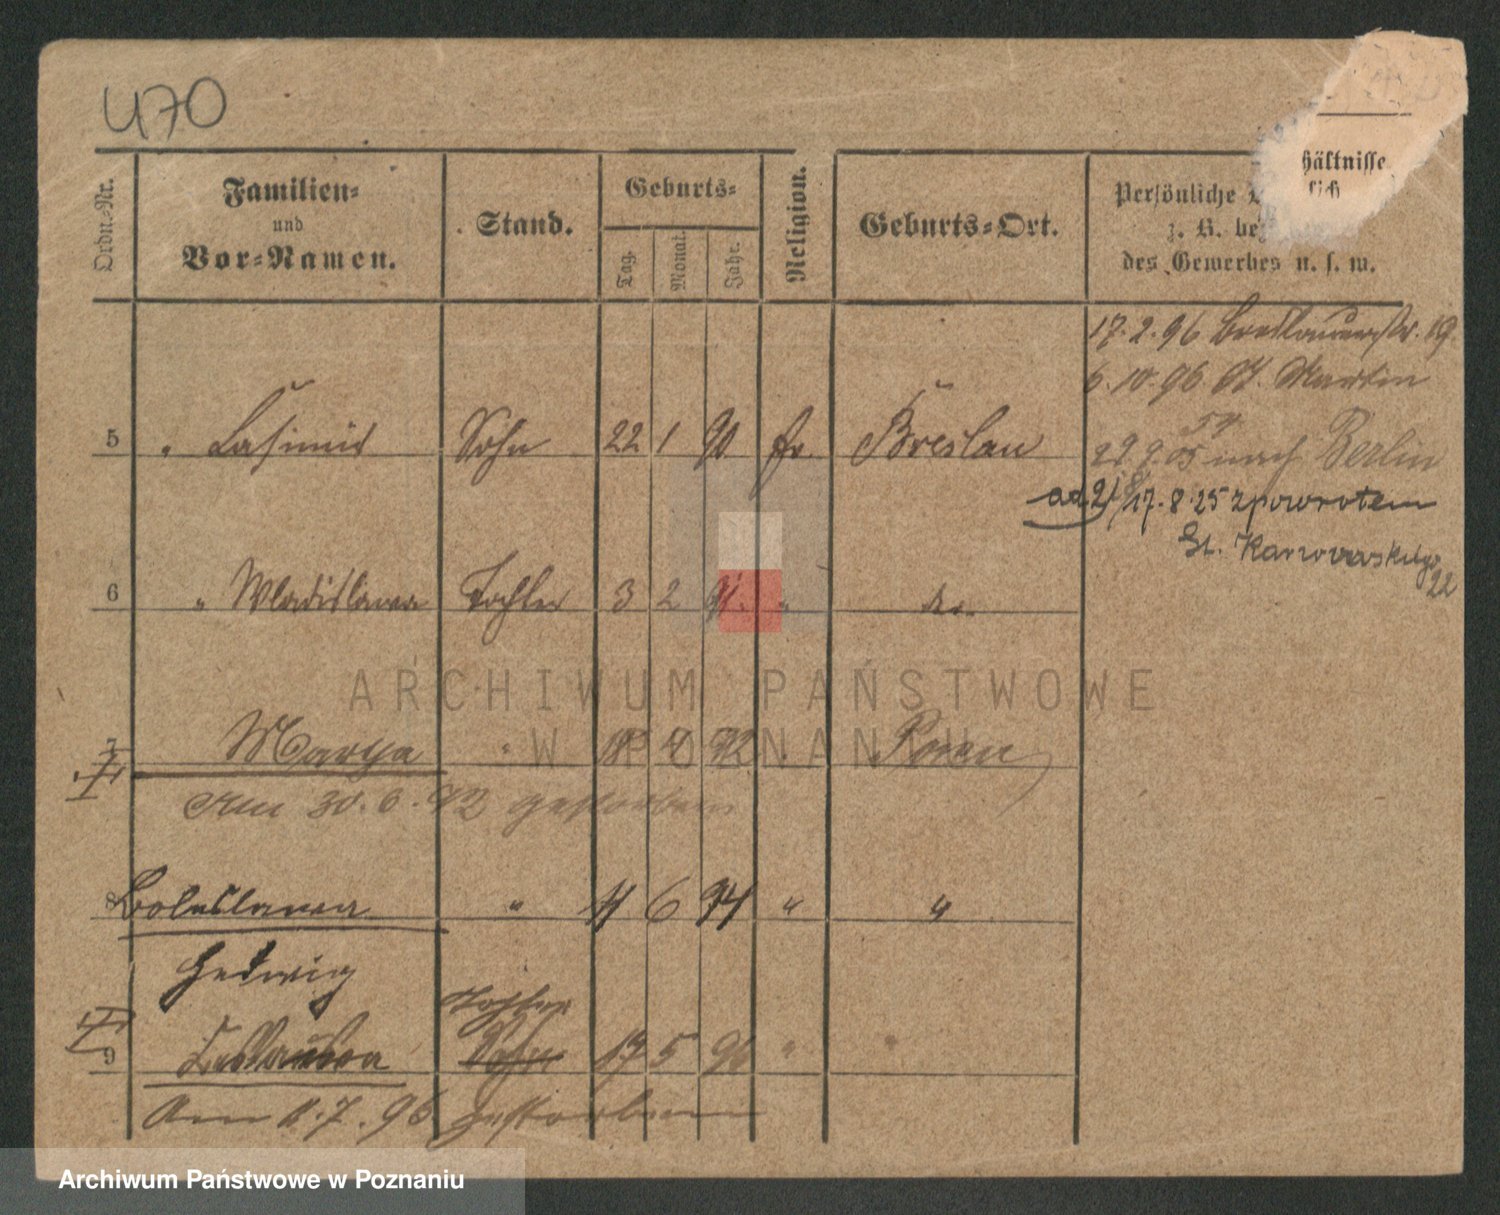 470
Ordn.-Nr.
Familien-
und
Vor-Namen.
Stand.
Geburts-
Tag.
Monat.
Jahr.
Religion.
Geburts-Ort.
hältnisse
sich
Persönliche
z. B.
des Gewerbes u. s. w.
17.2.96 Breslauerstr. 19
6.10.96 St. Martin
54
5 " Casimir Sohn 22 1 90 Breslau
22.9.05 nach Berlin
ad 2/ 17.8.25 z powrotem
6 " Wladislawa Tochter 3 2 91. " do.
22
ARCHIWUM PAŃSTWOWE
W POZNANIU
7 Marya " 18 4 92 Posen
Am 30.6.92 gestorben
8 Boleslawa " 11 6 94 " "
Hedwig
Tochter
9 Sohn 17 5 96 " "
Am 8.7.96 gestorben
Archiwum Państwowe w Poznaniu